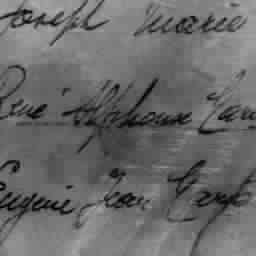 Joseph Marie
René Alphonse
Eugène Jean